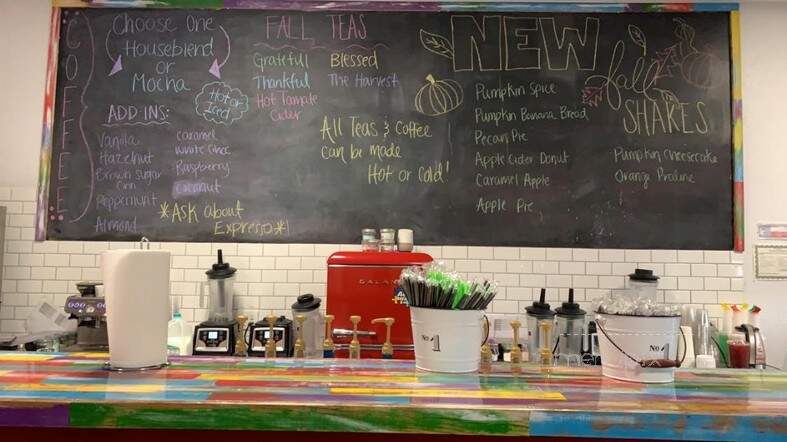 COFFEE
Choose One
Houseblend
or
Mocha
Hot or
Iced
ADD INS:
Vanilla
Hazelnut
Brown sugar
Cinn
Peppermint
Almond
caramel
white choc
Raspberry
coconut
*Ask about
Expresso*
FALL TEAS
Grateful
Blessed
Thankful
The Harvest
Hot Tamale
Cider
All Teas & Coffee
can be made
Hot or Cold!
NEW
fall
SHAKES
Pumpkin Spice
Pumpkin Banana Bread
Pecan Pie
Apple Cider Donut
Caramel Apple
Apple Pie
Pumpkin Cheesecake
Orange Praline
GALANZ
No 1
No 1